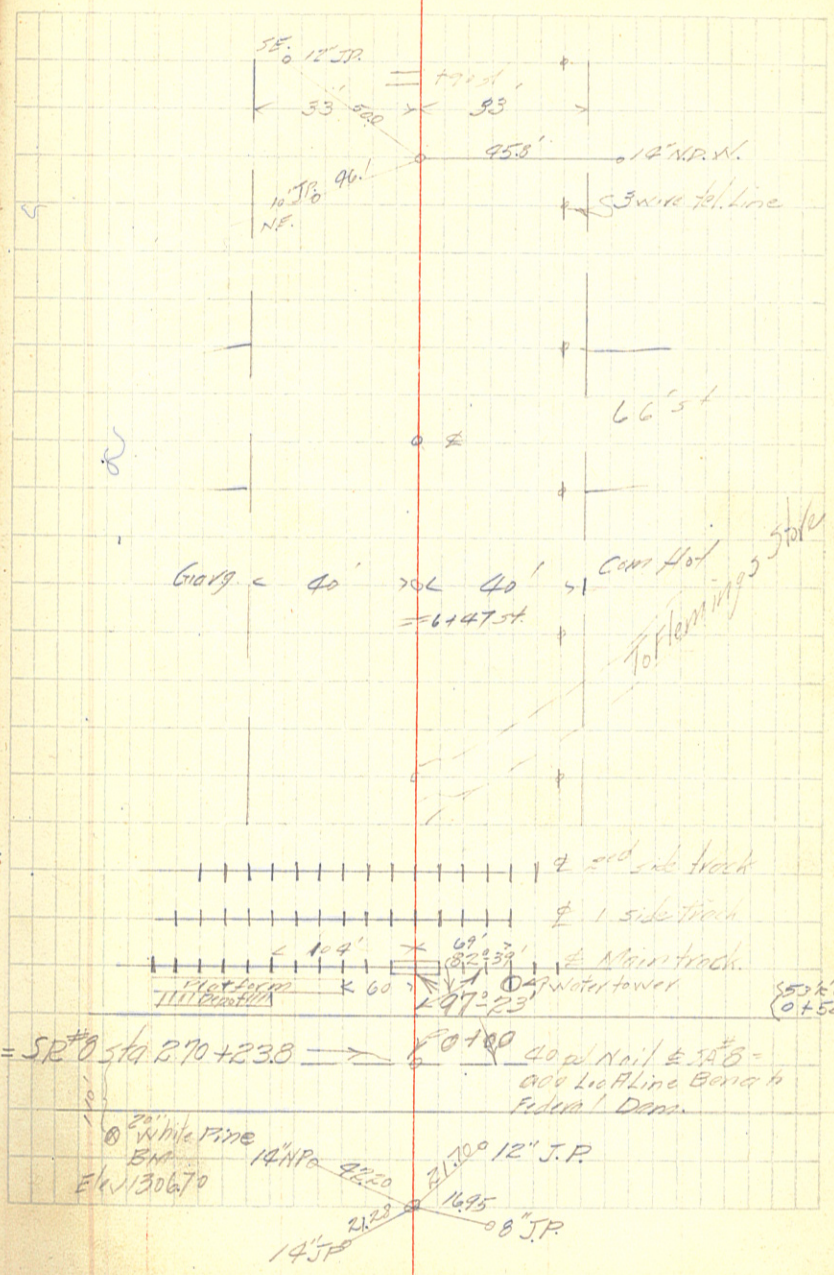 SE. 12" J.P.
33' 50.0 33'
45.8' 14" N.P. N.W.
10" J.P. 46.1
N.E.
3 wire tel. Line
66' st
Garg 40' 40' Com Hot
= 6+47 st.
To Flemings Store
℄ 2nd side track
℄ 1 side track
104' 69'
82°-39' ℄ Main track.
Platform 60 Water tower
Depot 97°-23'
= SR #8 sta 270+23.8 0+00 40 pd Nail ℄ SR #8 =
0+00 Loc A Line Bena to
Federal Dam.
20" White Pine
BM
Elev 1306.70
14" NP 42.20 21.70 12" J.P.
21.28 16.95
14" JP 8" J.P.